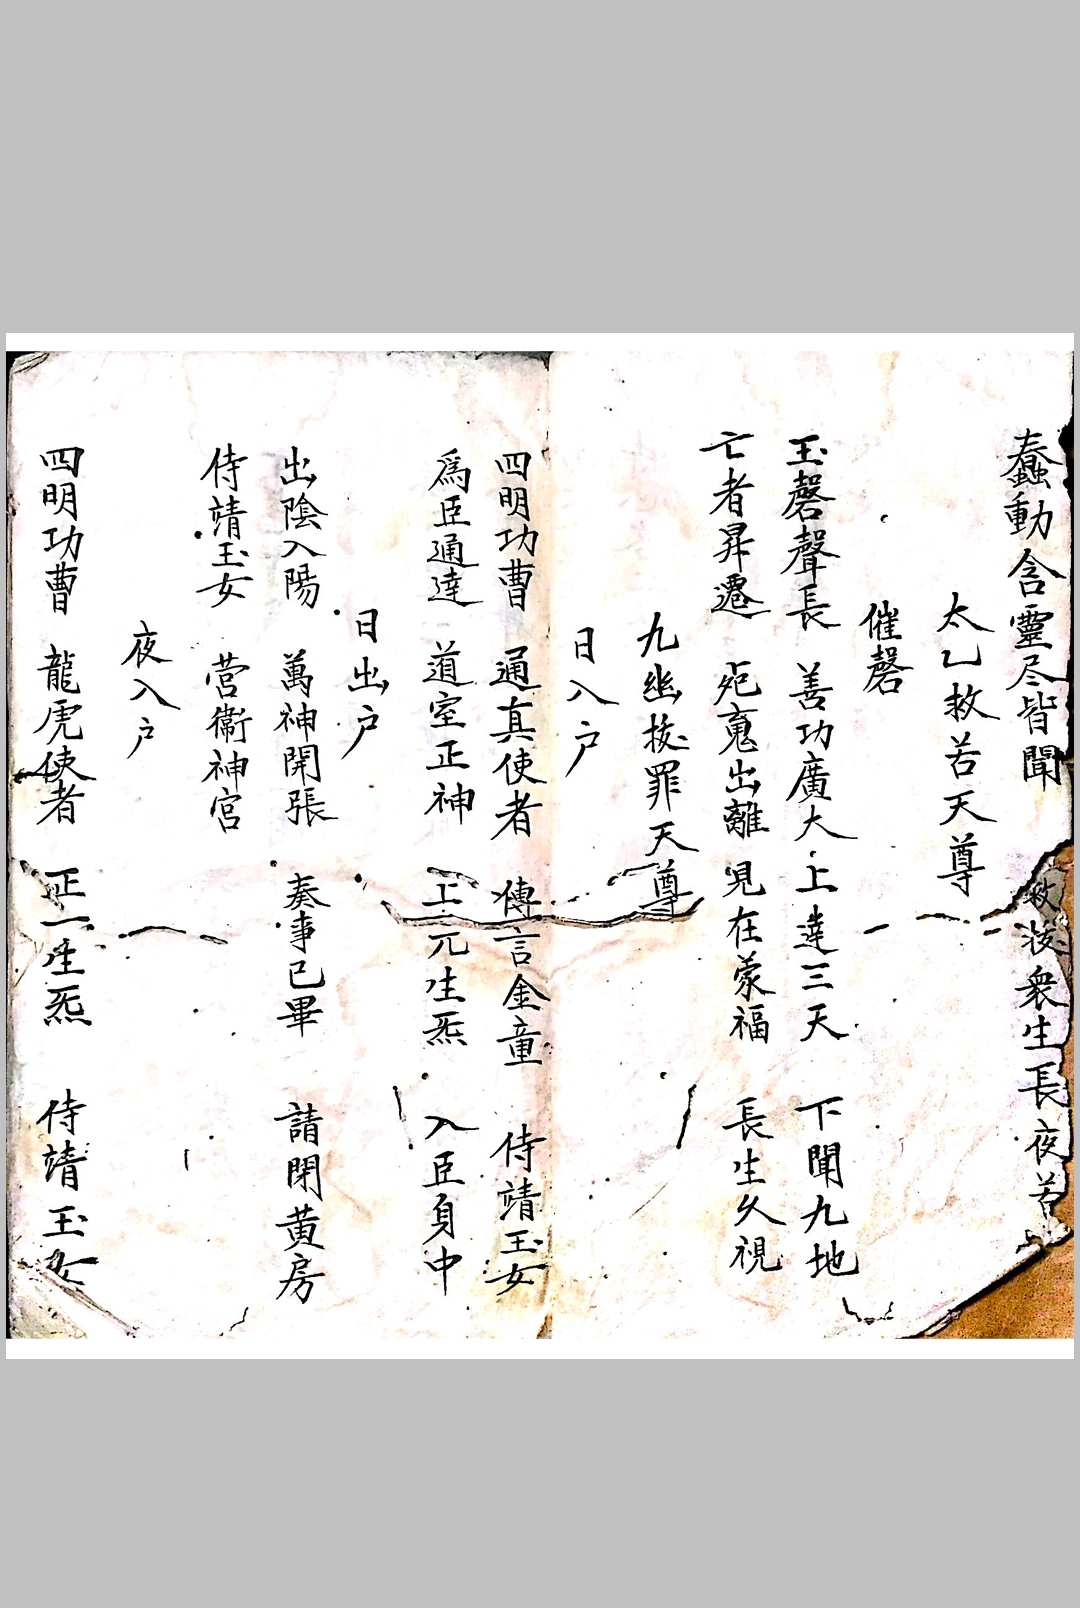 蠢動含靈尽皆聞　救拔衆生長夜苦
太乙救苦天尊
催磬
玉磬聲長　善功廣大　上達三天　下聞九地
亡者昇遷　𣦸䰟出離　見在蒙福　長生久視
九幽拔罪天尊
日入户
四明功曹　通真使者　傳言金童　侍靖玉女
爲臣通達　道室正神　上元生炁　入臣身中
日出户
出陰入陽　萬神開張　奏事已畢　請閉黄房
侍靖玉女　營衛神宫
夜入户
四明功曹　龍虎使者　正一生炁　侍靖玉女